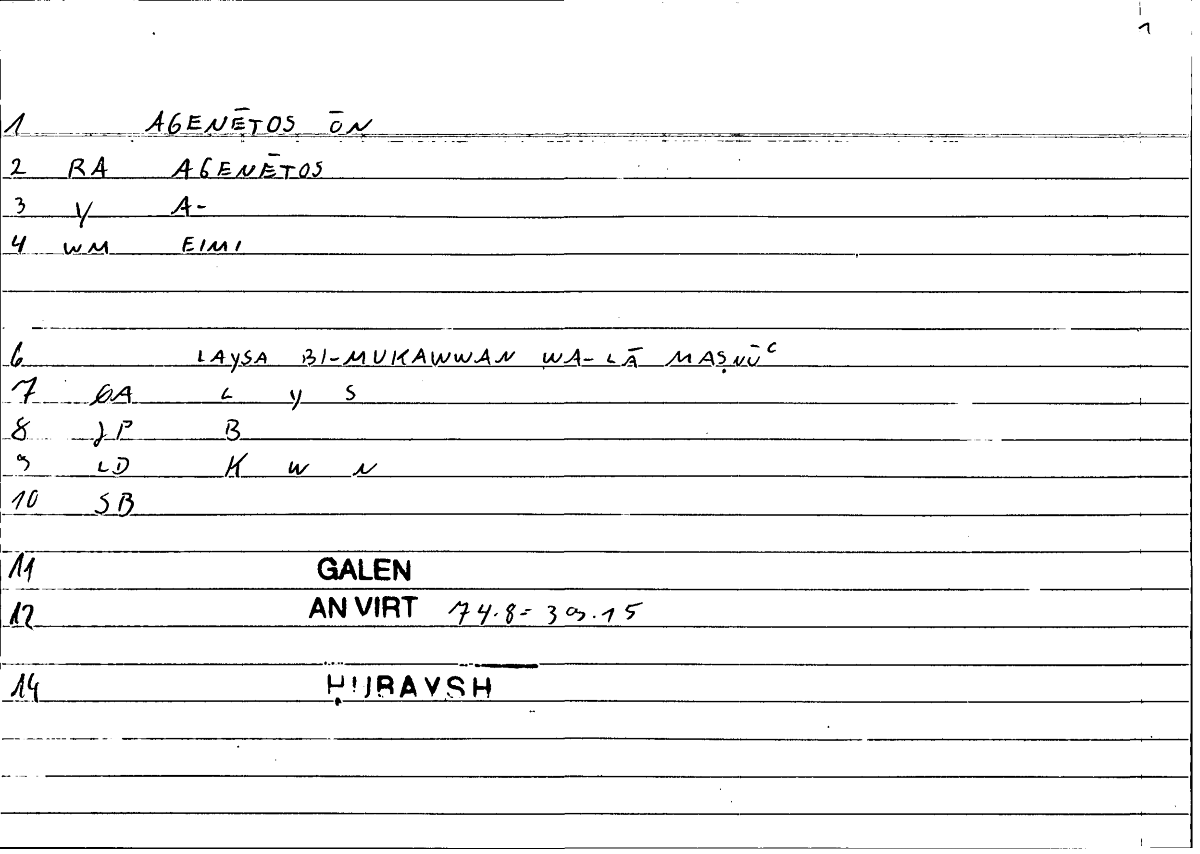 1
1 AGENĒTOS ŌN
2 RA AGENĒTOS
3 V A-
4 WM EIMI
6 LAYSA BI-MUKAWWAN WA-LĀ MAṢNŪʿ
7 GA L Y S
8 JP B
9 LD K W N
10 SB
11 GALEN
12 AN VIRT 74.8=39.15
14 ḤUBAYSH